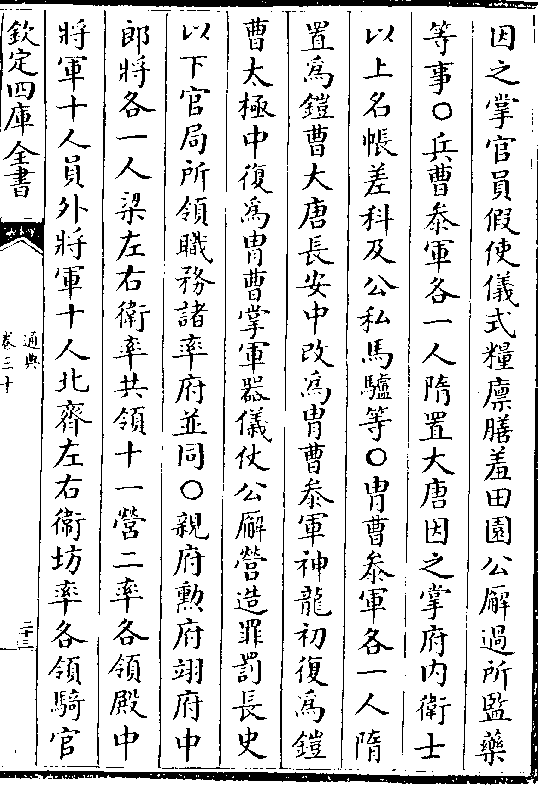 因之掌官員假使儀式糧廪膳羞田園公廨過所監藥
等事○兵曹叅軍各一人隋置大唐因之掌府内衛士
以上名帳差科及公私馬驢等○冑曹叅軍各一人隋
置為鎧曹大唐長安中改為冑曹叅軍神龍初復為鎧
曹太極中復為冑曹掌軍器儀仗公廨營造罪罰長史
以下官局所領職務諸率府並同○親府勲府翊府中
郎將各一人梁左右衛率共領十一營二率各領殿中
將軍十人員外將軍十人北齊左右衛坊率各領騎官
欽定四庫全書
通典
卷三十
二十三